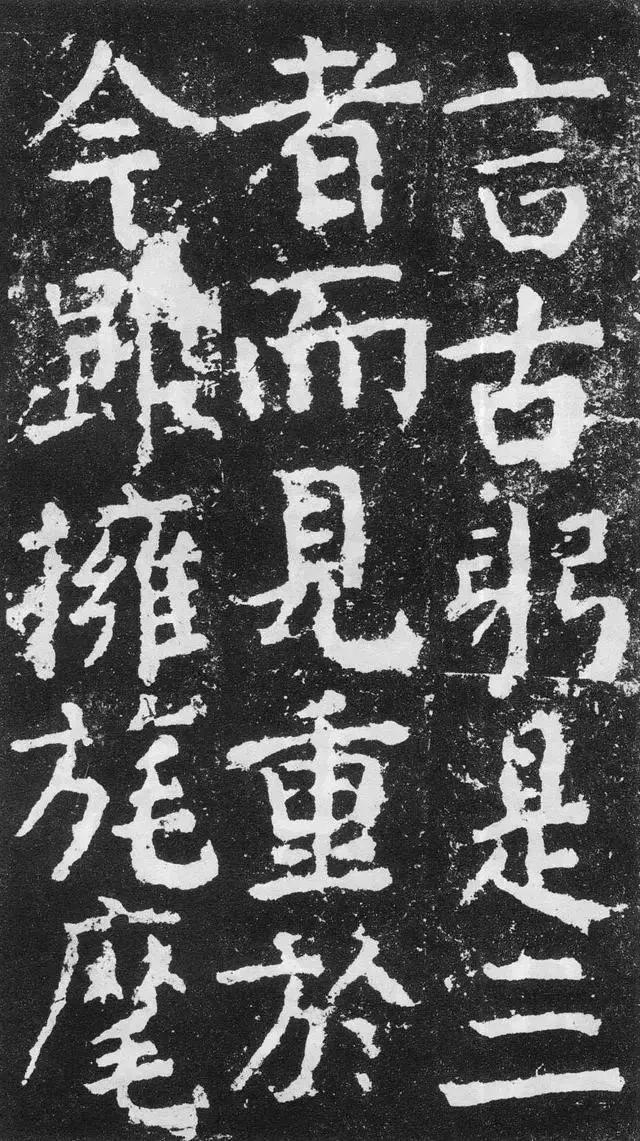 言古躬是三
者而見重於
今雖擁旄麾